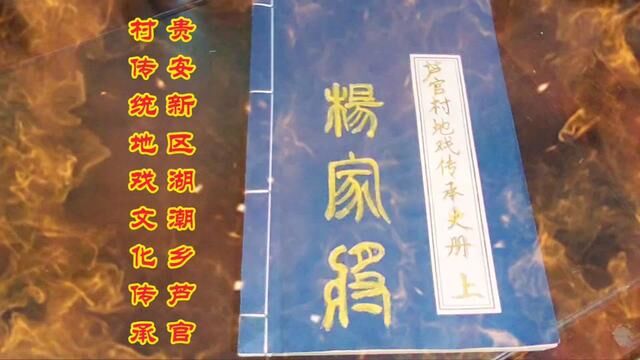 贵安新区湖潮乡芦官
村传统地戏文化传承
芦官村地戏传承史册 上
楊家将